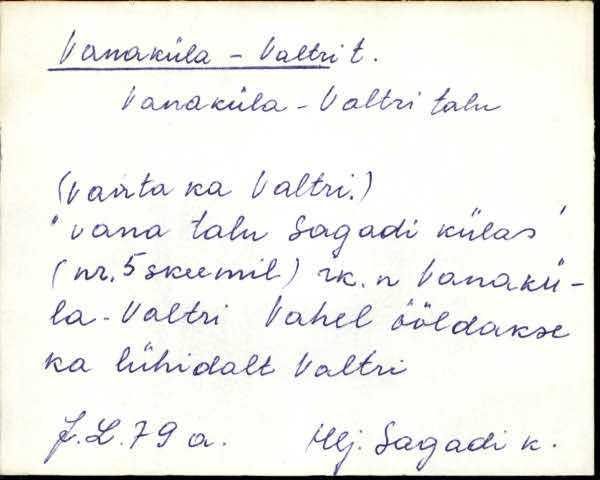 Vanaküla - Valtri t.
Vanaküla - Valtri talu
(vaata ka Valtri.)
"vana talu Sagadi külas"
(nr. 5 skeemil) rk. n Vanakü-
la-Valtri Vahel ööldakse
ka lühidalt Valtri
J. L. 79 a. Hlj. Sagadi k.